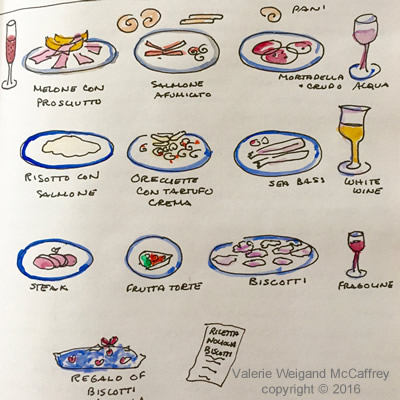 PANI
MELONE CON
PROSCIUTTO
SALMONE
AFUMICATO
MORTADELLA
+ CRUDO
ACQUA
RISOTTO CON
SALMONE
ORECHETTE
CON TARTUFO
CREMA
SEA BASS
WHITE
WINE
STEAK
FRUTTA TORTE
BISCOTTI
FRAGOLINE
REGALO OF
BISCOTTI
BISCOTTI
Valerie Weigand McCaffrey
copyright © 2016